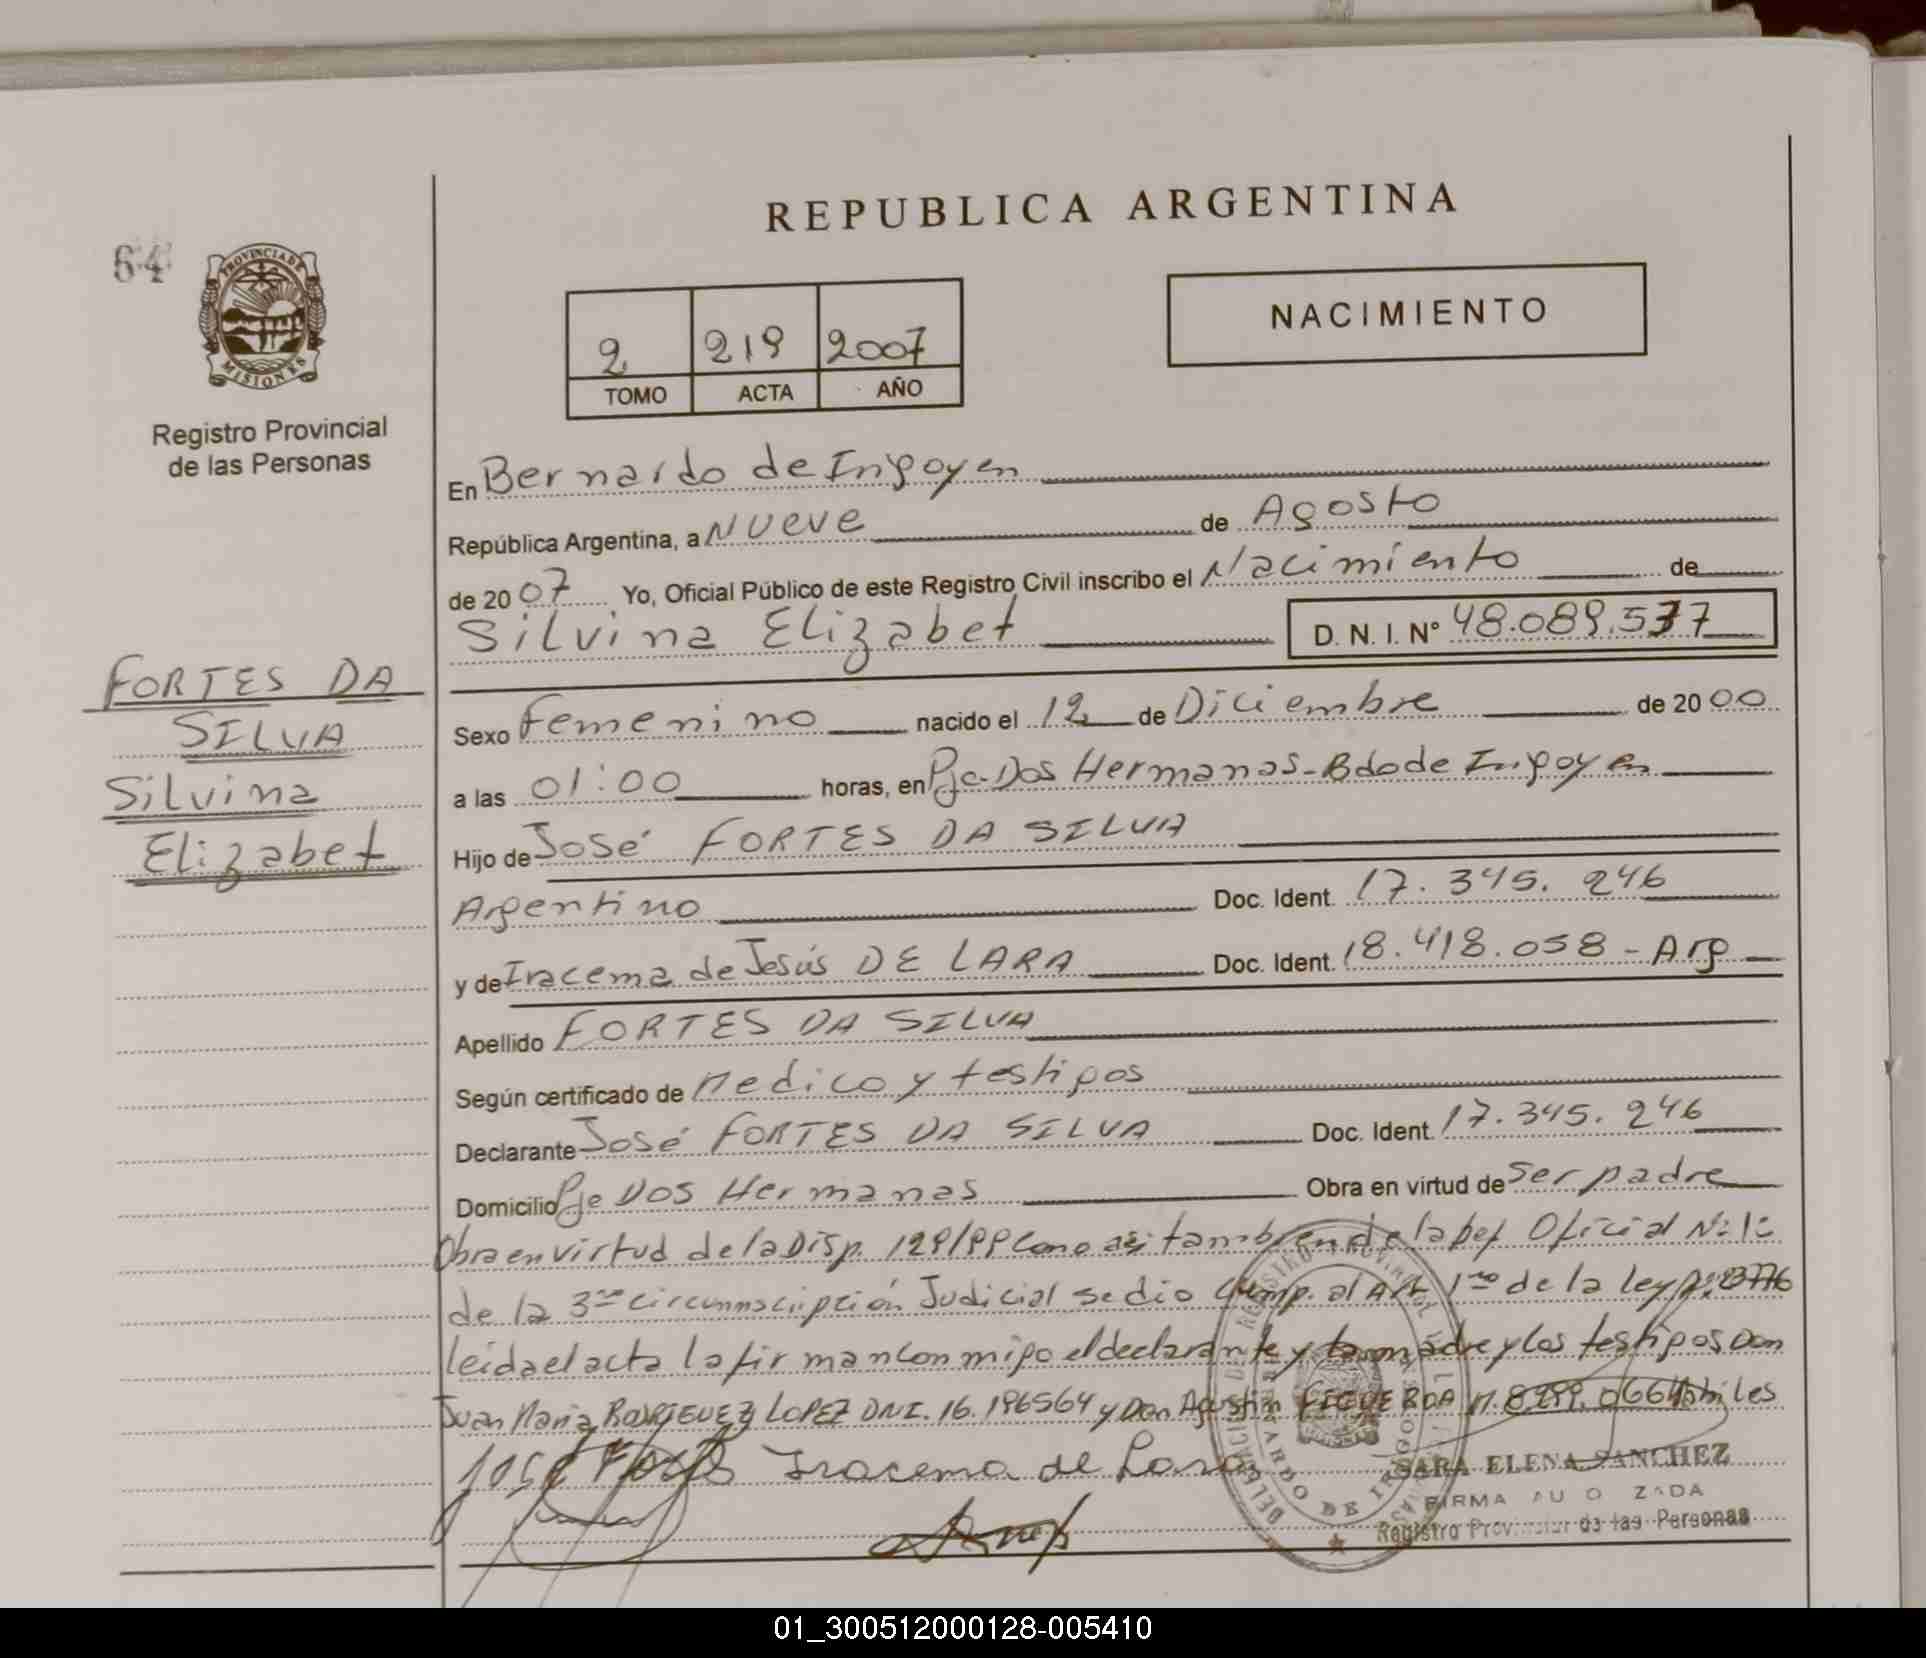 REPUBLICA ARGENTINA
64
PROVINCIA DE
MISIONES
Registro Provincial
de las Personas
2 219 2007
TOMO ACTA AÑO
NACIMIENTO
En Bernardo de Irigoyen
República Argentina, a Nueve de Agosto
de 2007 Yo, Oficial Público de este Registro Civil inscribo el Nacimiento de
Silvina Elizabet D. N. I. N° 48.089.537
FORTES DA
SILVA
Silvina
Elizabet
Sexo Femenino nacido el 12 de Diciembre de 2000
a las 01:00 horas, en Pje-Dos Hermanas-Bdo de Irigoyen
Hijo de José FORTES DA SILVA
Argentino Doc. Ident. 17.345.246
y de Iracema de Jesús DE LARA Doc. Ident. 18.418.058 - Arg
Apellido FORTES DA SILVA
Según certificado de Medico y testigos
Declarante José FORTES DA SILVA Doc. Ident. 17.345.246
Domicilio Pje Dos Hermanas Obra en virtud de Ser padre
Obra en virtud de la Disp. 129/99 como así tambien de la Def Oficial N: 1:
de la 3ra circunnscripción Judicial se dio Cump. al Art 1ro de la ley
leida el acta la firman con migo el declarante y la madre y los testigos Don
Juan Maria RODRIGUEZ LOPEZ DNI. 16.196564 y Don Agustin FIGUEROA habiles
José Fortes Iracema de Lara
SARA ELENA SANCHEZ
FIRMA AU O ZADA
Registro Provincial de las Personas
01_300512000128-005410